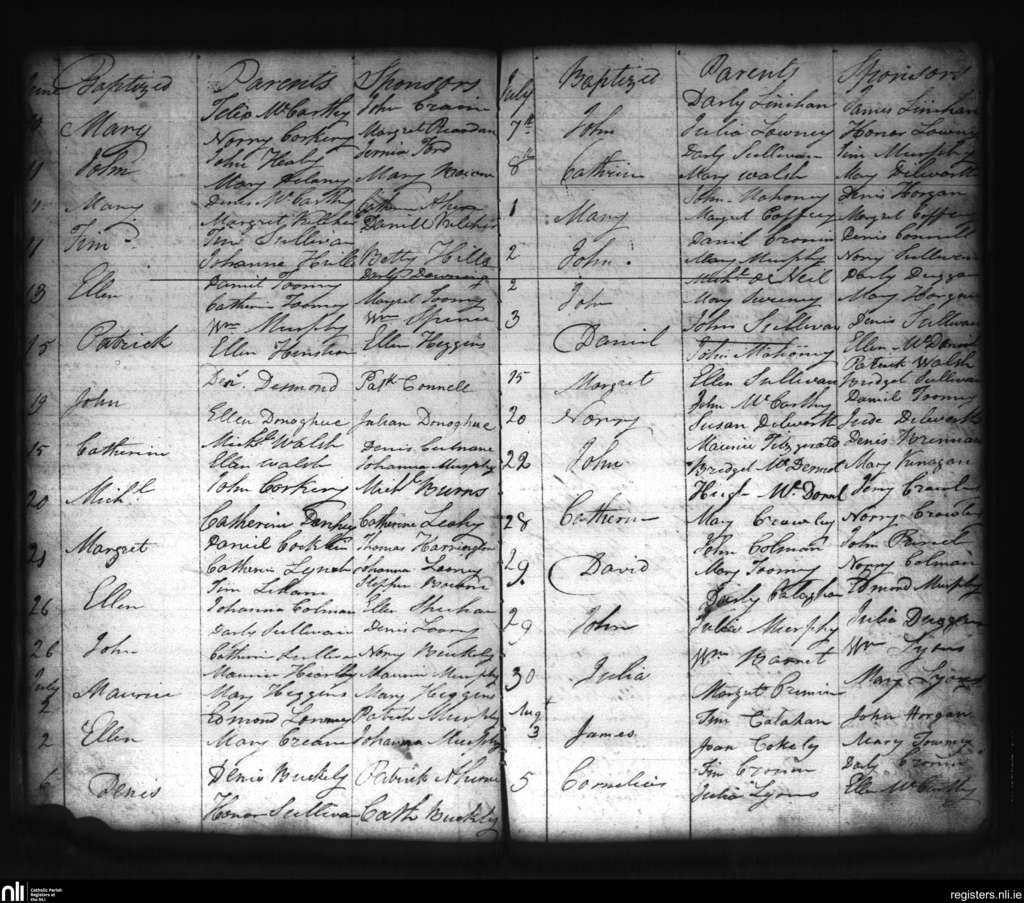 June Baptized Parents Sponsors
Mary Felix McCarthy John Crean
Norry Corkery Margret Reardan
John John Healy Jernia Ford
Mary Delaney Mary
11 Mary Denis McCarthy Catherine Ahern
Margret Daniell
11 Tim Tim Sullivan
Johanna Hills Betty Hills
Darby Downing
13 Ellen Daniel Toomy
Catherin Toomy Margret Toomy
15 Patrick Wm Murphy Wm Spence
Ellen Henston Ellen Heggins
19 John Denl. Desmond Patk Connell
Ellen Donoghue Julian Donoghue
15 Catherin Michl Walsh Denis Culnane
Ellen Walsh Johanna Murphy
20 Michl John Corkery Michl Burns
Catherine Catherine Leahy
21 Margret Daniel Thomas Harrington
Catherin Lynch Johanna
26 Ellen Tim Stephen
Johanna Colman Ellen Sheehan
26 John Darby Sullivan Denis
Catherin Sullivan Norry Buckely
July
2 Maurice Maurice Maurice Murphy
Mary Heggins Mary Heggins
2 Ellen Edmond Patrick Murphy
Mary Crean Johanna Murphy
6 Denis Denis Buckely Patrick Ahern
Honor Sullivan Cath Buckley
July Baptized Parents Sponsors
7th John Darby Linehan James Linehan
Julia Lowney Honor Lowney
8th Cathrin Darby Sullivan Jim Murphy
Mary Walsh Mary Dilworth
1 Mary John Mahony Denis Horgan
Margret Coffey Margret Coffey
2 John. Daniel Cronin Denis Connell
Mary Murphy Norry Sullivan
2 John Michl O Neil Darby Duggan
Mary Sweeney Mary Horgan
3 Daniel John Sullivan Denis Sullivan
Ellen McDaniel
15 Margret John Mahony Patrick Walsh
Ellen Sullivan Bridget Sullivan
20 Norry John McCarthy Daniel Toomy
Susan Dilworth Jude Dilworth
22 John Maurice Fitzgerald Denis Brennan
Bridget McDermot Mary Finagan
28 Catherin Hugh Jerry Crawley
Mary Crawley Norry Crawley
29 David John Colman John
Mary Toomy Norry Colman
29 John Darby Calaghan Edmond Murphy
Julia Murphy Julia Duggan
30 Julia Wm Barret Wm Lyons
Margret Crimin Mary Lyons
Augt
3 James Tim Calahan John Horgan
Joan Cokely Mary
5 Cornelius Tim Cronin Darby Cronin
Julia Lyons Ellen McCarthy
nli Catholic Parish Registers at the NLI
registers.nli.ie